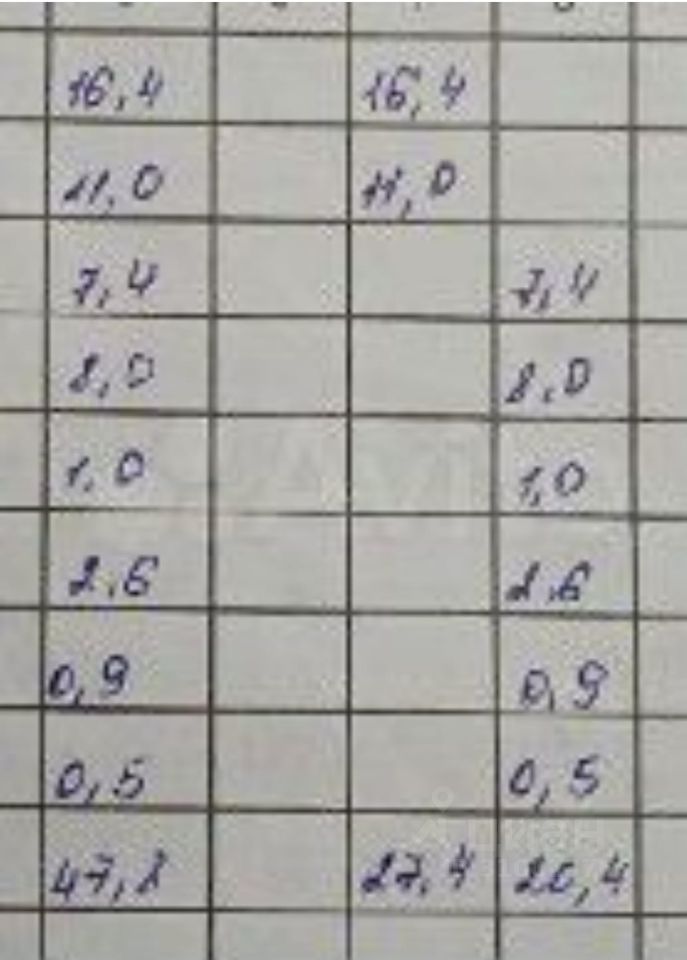 16,4 16,4
11,0 11,0
7,4 7,4
8,0 8,0
1,0 1,0
2,6 2,6
0,9 0,9
0,5 0,5
47,8 27,4 20,4